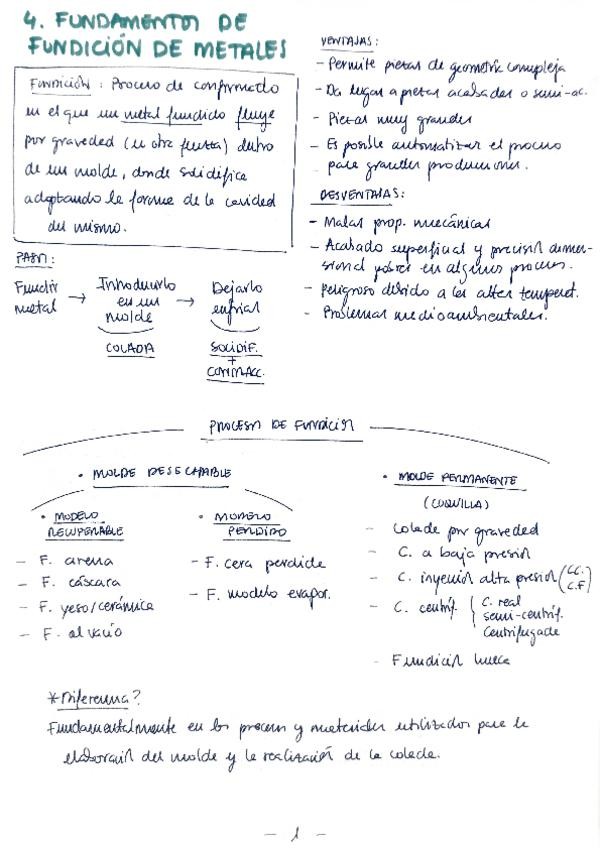 4. FUNDAMENTOS DE
FUNDICIÓN DE METALES
FUNDICIÓN: Proceso de conformado
en el que un metal fundido fluye
por gravedad (u otra fuerza) dentro
de un molde, donde solidifica
adoptando la forma de la cavidad
del mismo.
PASOS:
Fundir
metal
→ Introducirlo
en un
molde
COLADA
→ Dejarlo
enfriar
SOLIDIF.
+
CONTRACC.
VENTAJAS:
- Permite piezas de geometría compleja
- Da lugar a piezas acabadas o semi-ac.
- Piezas muy grandes
- Es posible automatizar el proceso
para grandes producciones.
DESVENTAJAS:
- Malas prop. mecánicas
- Acabado superficial y precisión dimen-
sional pobres en algunos procesos.
- Peligroso debido a las altas temperat.
- Problemas medioambientales.
PROCESOS DE FUNDICIÓN
• MOLDE DESECHABLE
• MODELO
RECUPERABLE
- F. arena
- F. cáscara
- F. yeso/cerámica
- F. al vacío
• MODELO
PERDIDO
- F. cera perdida
- F. modelo evapor.
• MOLDE PERMANENTE
(COQUILLA)
- Colada por gravedad
- C. a baja presión
- C. inyección alta presión (C.C. / C.F)
- C. centríf. { C. real
semi-centríf.
Centrifugada
- Fundición hueca
* Diferencia?
Fundamentalmente en los procesos y materiales utilizados para la
elaboración del molde y la realización de la colada.
- 1 -